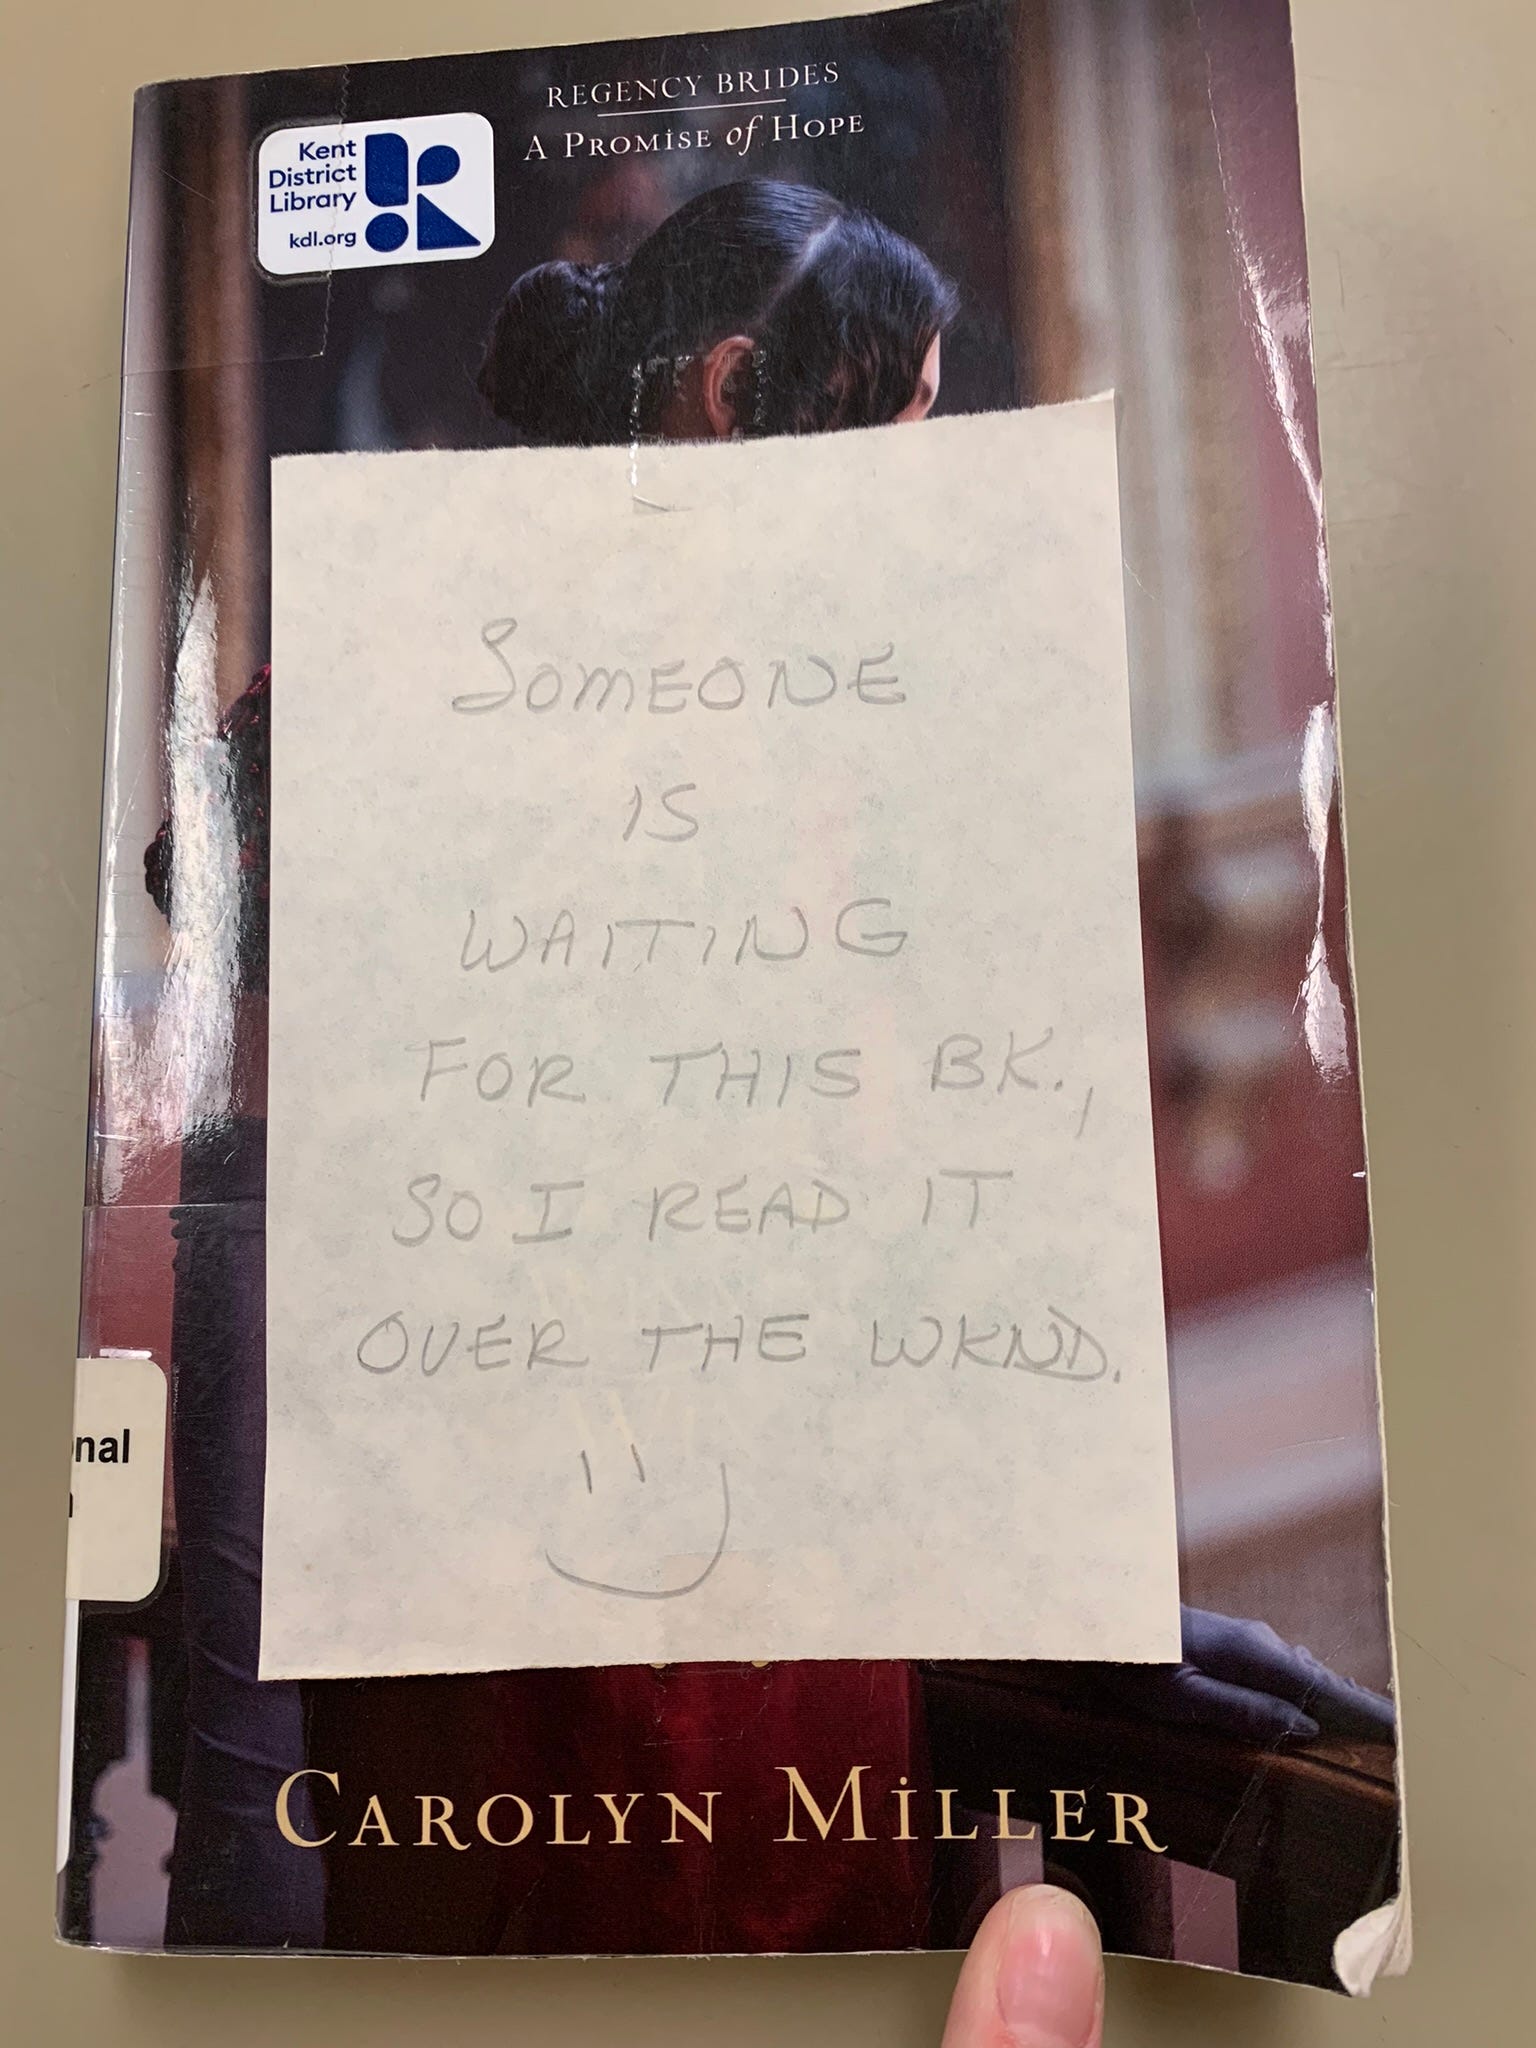 REGENCY BRIDES
A PROMISE of HOPE
Kent
District
Library
kdl.org
SOMEONE
IS
WAITING
FOR THIS BK.,
SO I READ IT
OVER THE WKND.
nal
CAROLYN MILLER